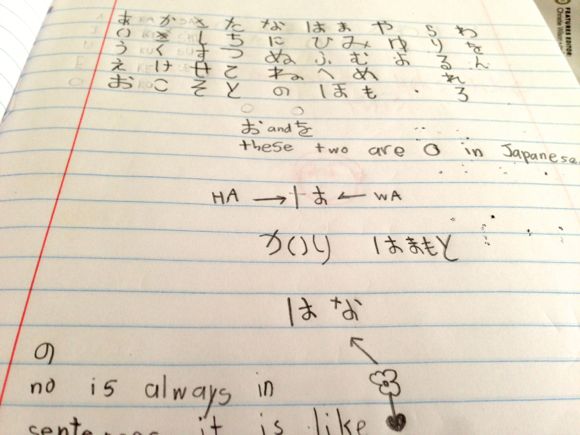 あ か さ た な は ま や ら わ
い き し ち に ひ み ゆ り を
う く す つ ぬ ふ む よ る ん
え け せ て ね へ め れ
お こ そ と の ほ も ・ ろ
FEATURES EDITOR
お and を
these two are O in Japanese.
HA → は ← WA
かいり はまもと
はな
の
no is always in
it is like